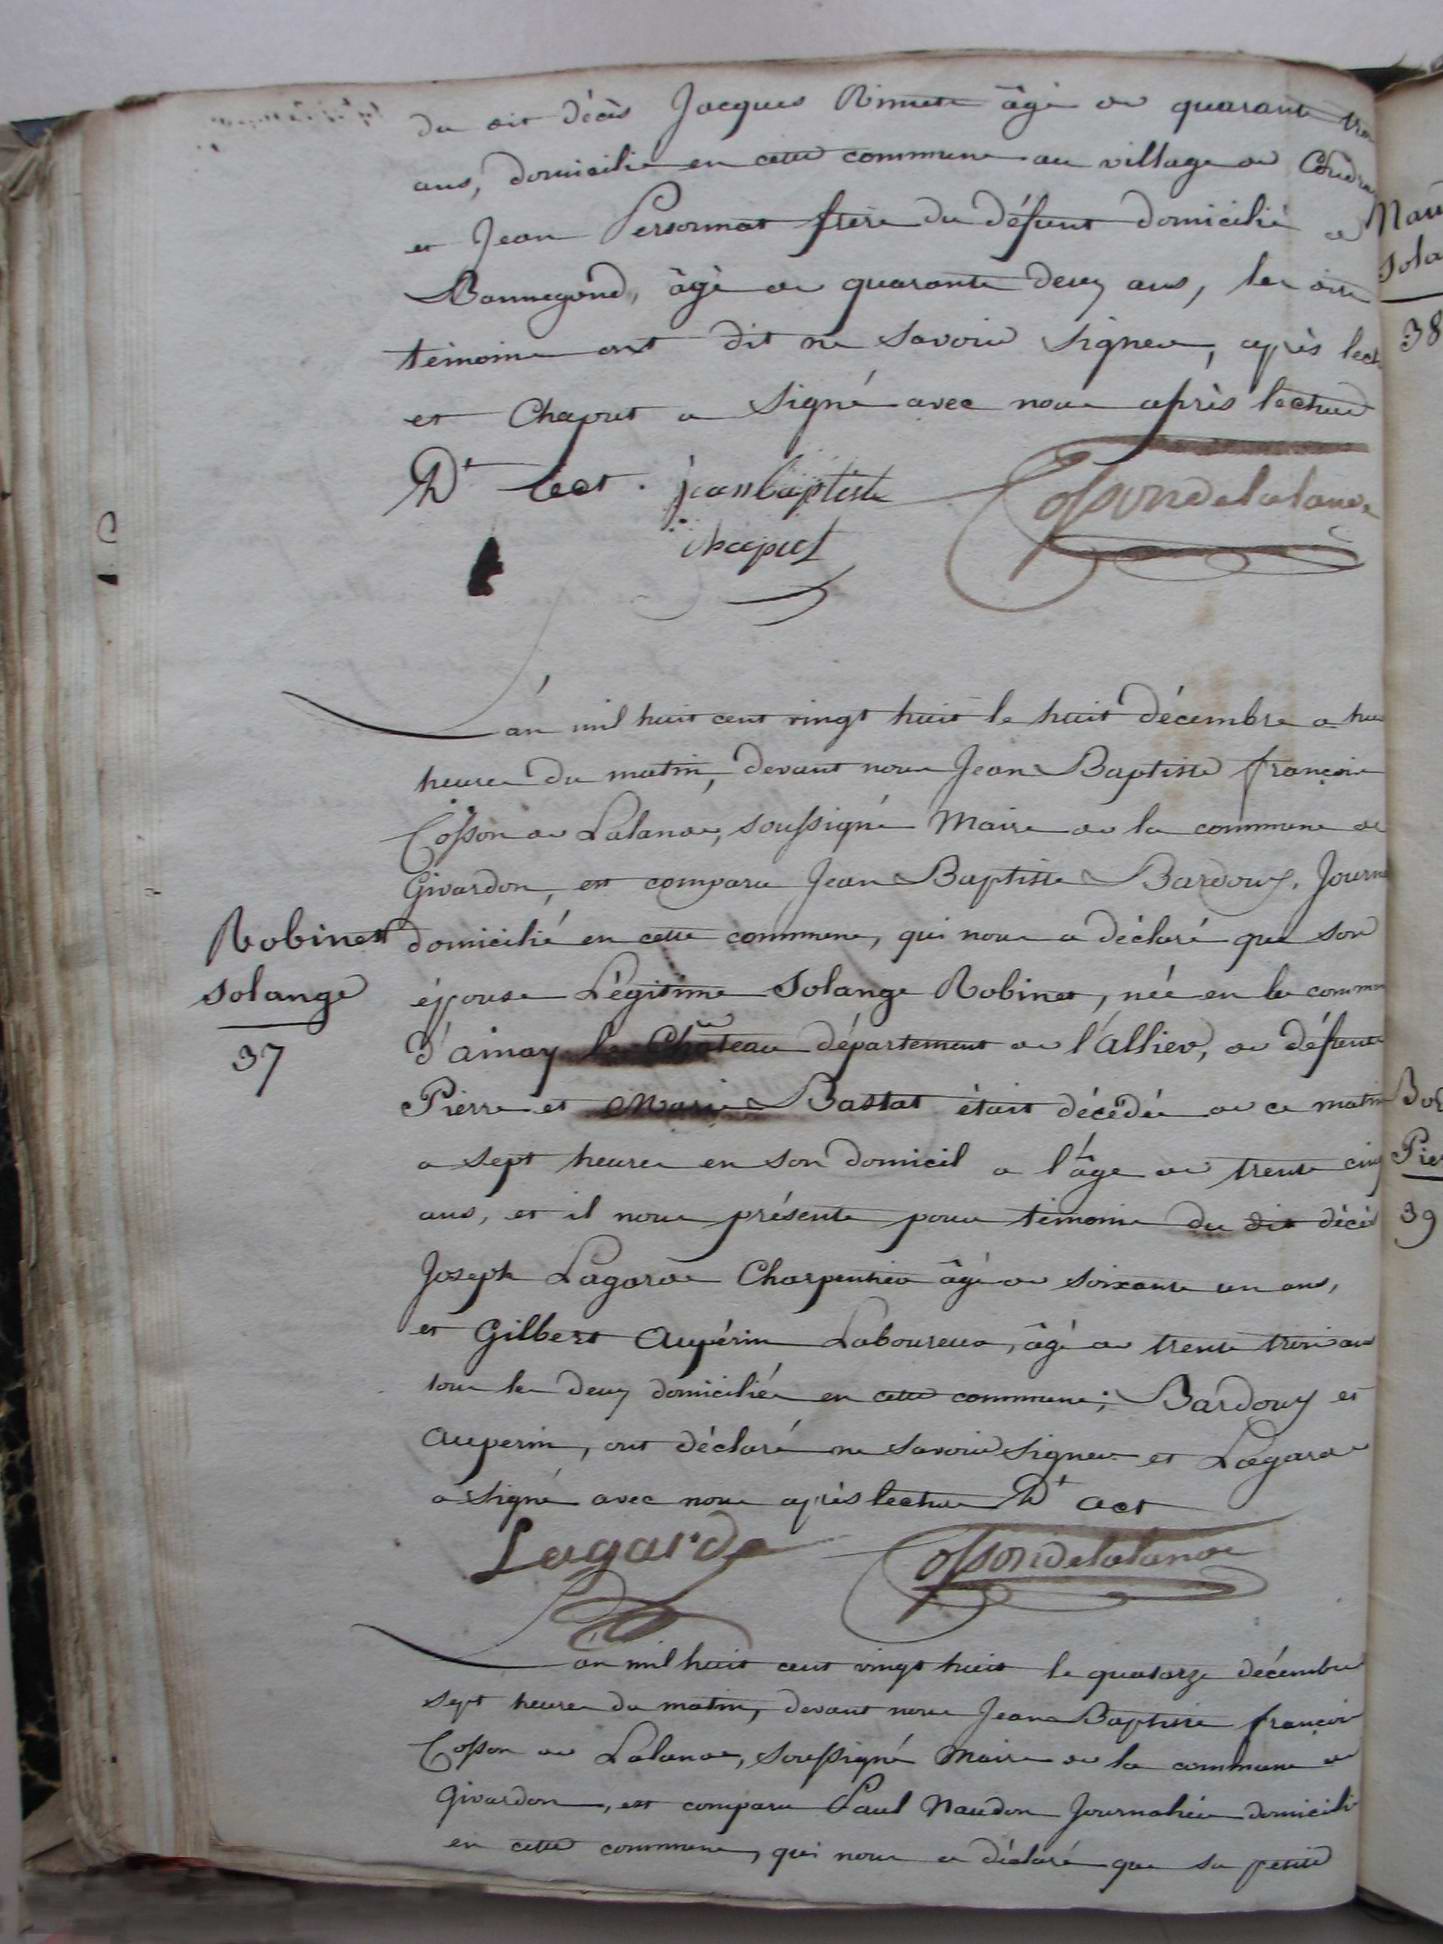 du dit décès Jacques Rimet âgé de quarante trois
ans, domicilié en cette commune au village de
et Jean Personnat frère du défunt domicilié a
Bannegond, âgé de quarante deux ans, les dits
témoins ont dit ne savoir signer, après lect
et Chaput a signé avec nous après lecture
Dt. act. jean baptiste
chaput
Cosson de lalande
L'an mil huit cent vingt huit le huit décembre a huit
heures du matin, devant nous Jean Baptiste françois
Cosson de Lalande, soussigné Maire de la commune de
Givardon, est comparu Jean Baptiste Bardoux, Journa
Robinet
solange
37
domicilié en cette commune, qui nous a déclaré que son
épouse Légitime Solange Robinet, née en la commune
d'ainay le Château département de l'allier, de défunts
Pierre et Marie Bastat était décédée de ce matin
a sept heures en son domicil a l'âge de trente cinq
ans, et il nous présente pour témoins du dit décès
Joseph Lagarde Charpentier âgé de soixante un ans,
et Gilbert Aupérin Laboureur, âgé de trente trois ans
tous les deux domiciliés en cette commune; Bardoux et
auperin, ont déclaré ne savoir signer et Lagarde
a signé avec nous après lecture Dt act
Lagarde Cosson de lalande
L'an mil huit cent vingt huit le quatorze décembre
sept heures du matin, devant nous Jean Baptiste françois
Cosson de Lalande, soussigné Maire de la commune de
Givardon, est comparu Paul Naudon Journalier domicilié
en cette commune, qui nous a déclaré que sa petite
Nau
sola
38
Pier
39